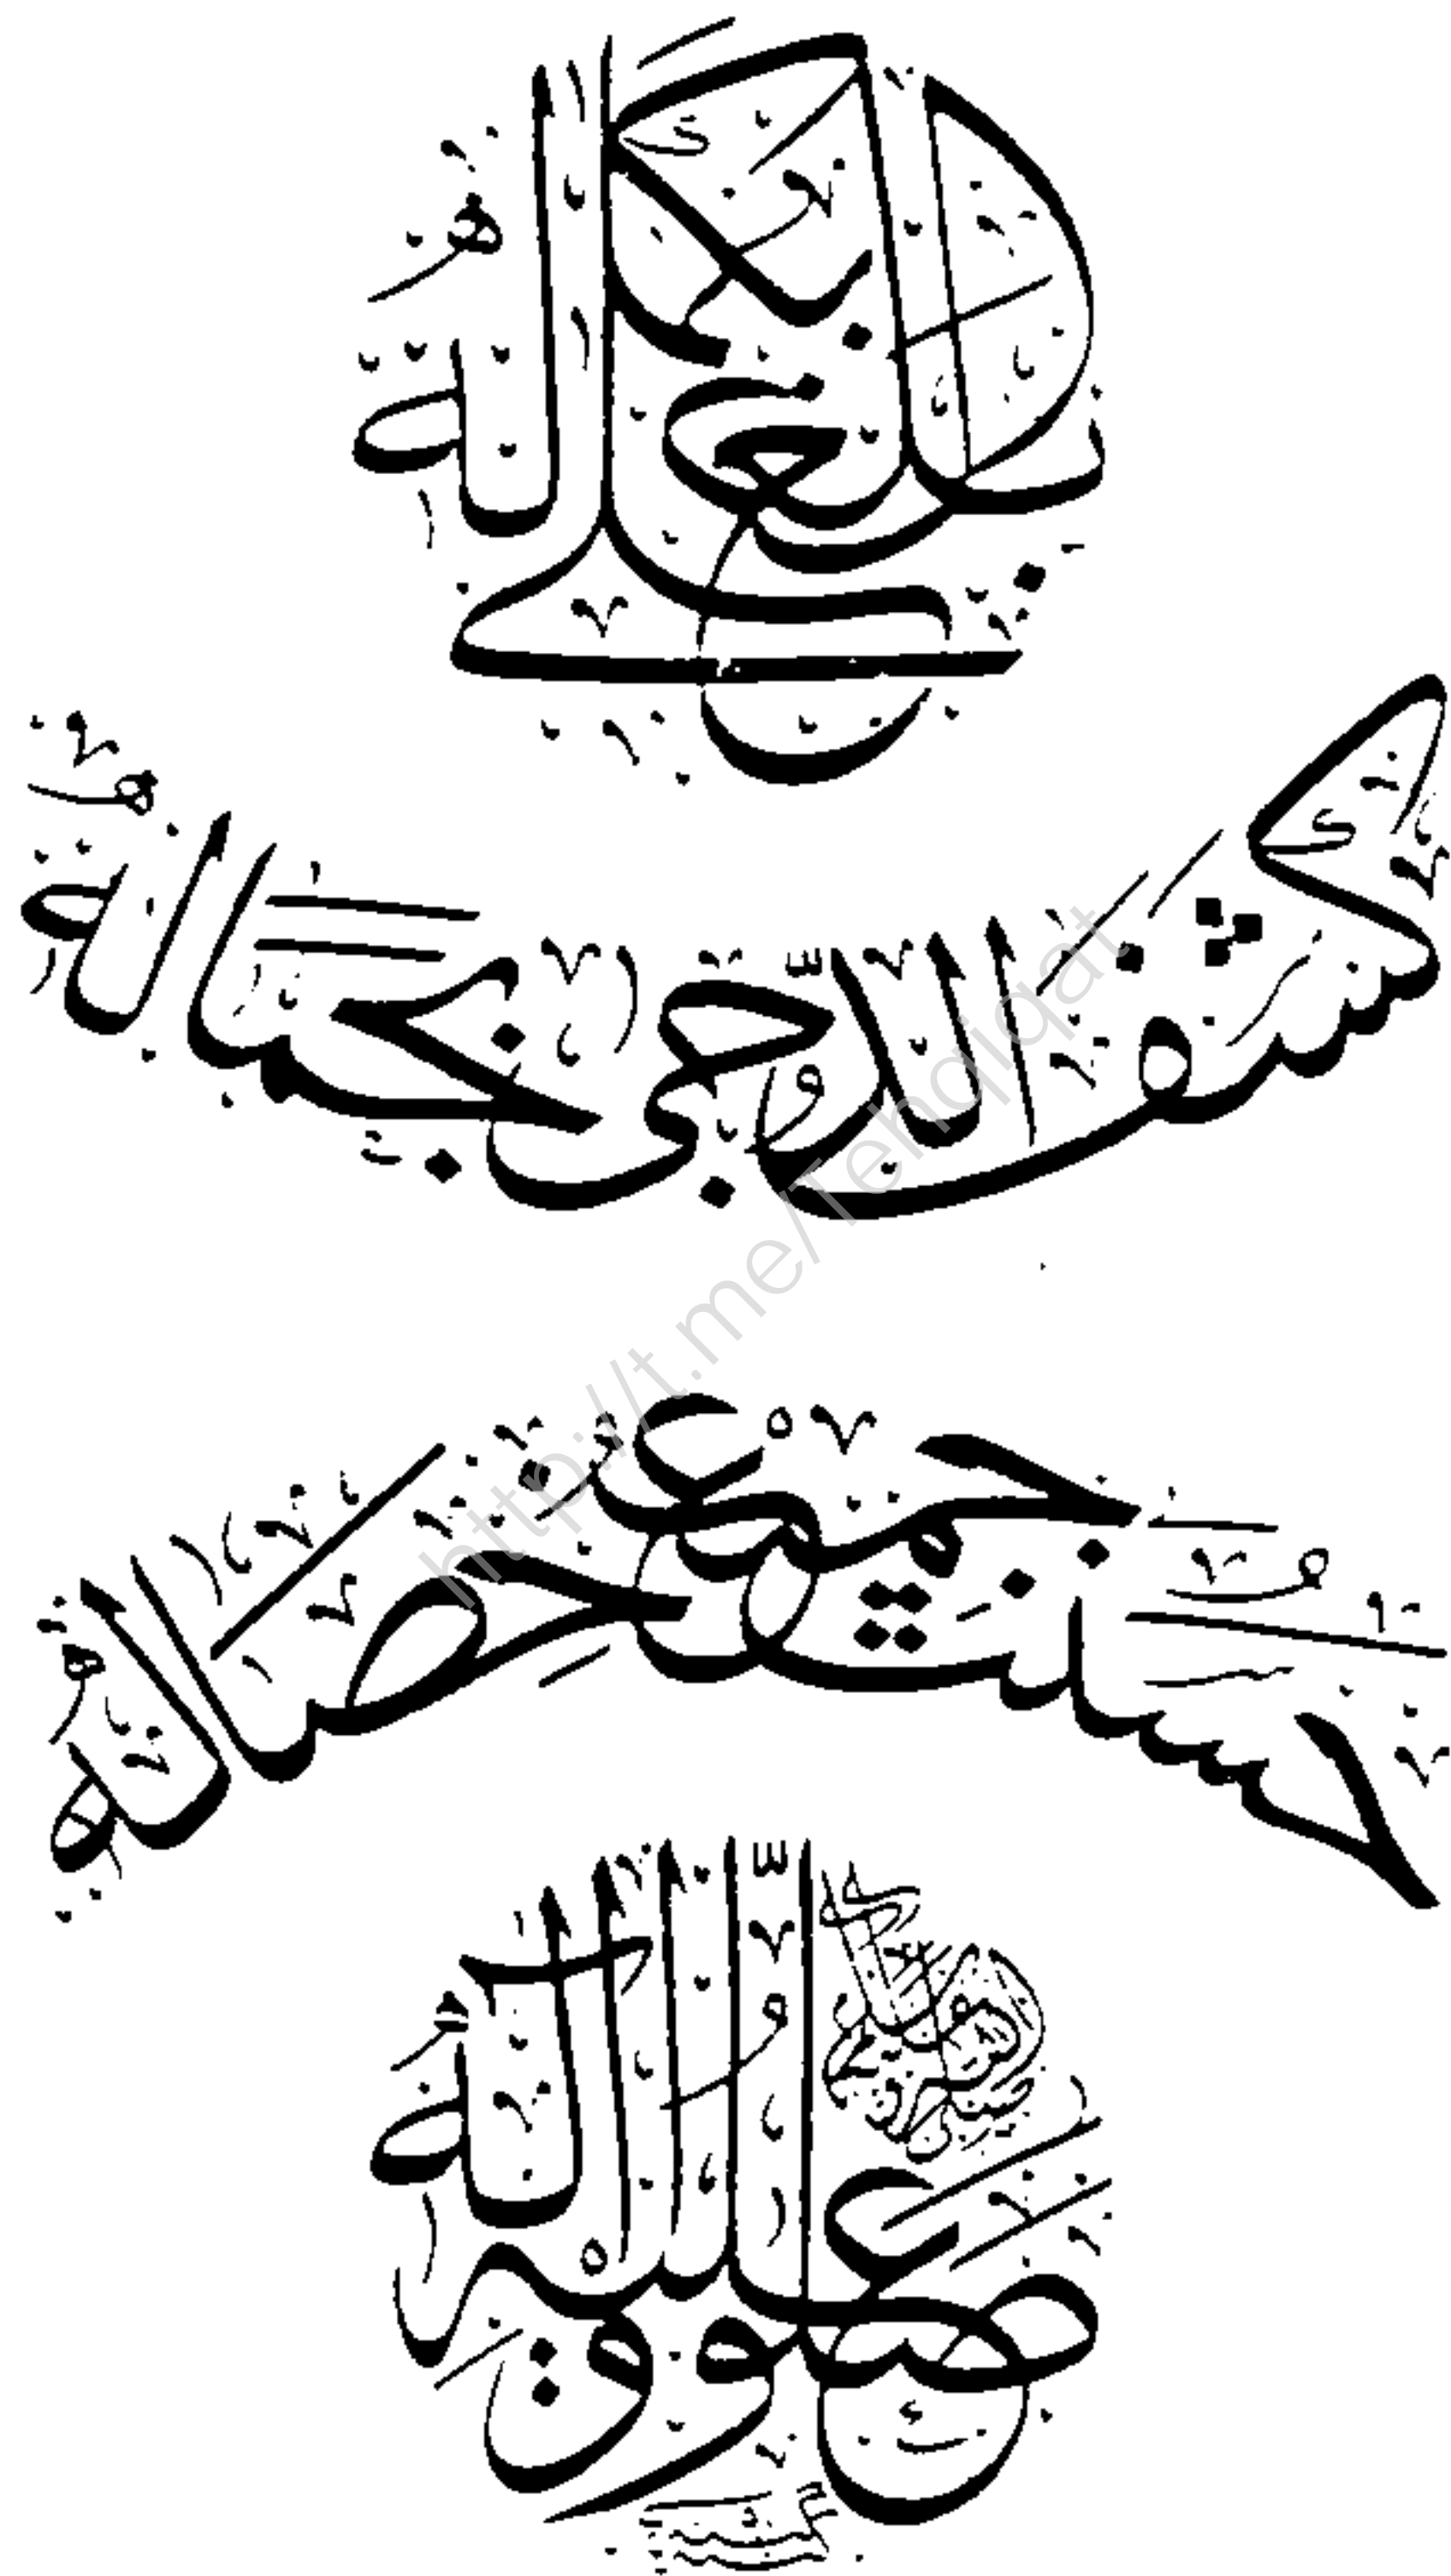 بلغ العلى بكماله
كشف الدجى بجماله
حسنت جميع خصاله
صلوا عليه وآله
http://t.me/Tehqiqat